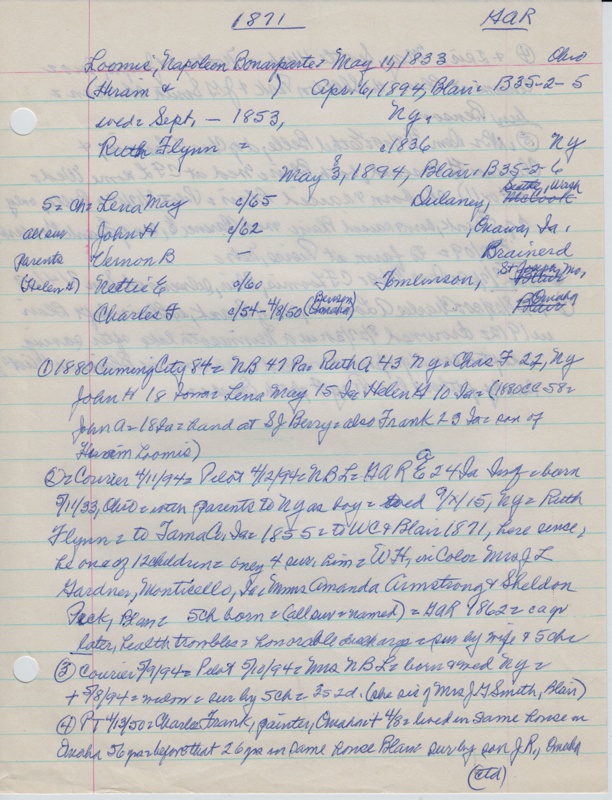 1871 GAR
Loomis, Napoleon Bonaparte = May 11, 1833 Ohio
(Hiram & ) Apr. 6, 1894, Blair = B35-2-5
wed = Sept, — 1853, Ny,
Ruth Flynn = c1836 Ny
May 8, 1894, Blair = B35-2-6
5 = ch = Lena May c/65 Dulaney, Seattle, Wash
all sur John H c/62 , Onawa, Ia,
parents Vernon B — Brainerd
(Helen H) Nettie E c/60 Tomlinson, St Joseph, Mo,
Charles F c/54 - 4/8/50 (Benson, Omaha) Omaha
① 1880 Cuming City 84 = NB 47 Pa = Ruth A 43 Ny = Chas F 27, Ny
John H 18 Iowa = Lena May 15 Ia = Helen H 10 Ia = (1880 CC = 58 =
John A = 18 Ia = hand at SJ Berry = also Frank 23 Ia = son of
Hiram Loomis)
② = Courier 4/11/94 = Pilot 4/12/94 = NBL = GAR Ea 24 Ia Inf = born
5/11/33, Ohio = with parents to Ny as boy = wed 9/x/15, Ny = Ruth
Flynn = to Tama Co, Ia = 1855 = to WC & Blair 1871, here since,
he one of 12 children = only 4 sur. him = WH, in Colo = Mrs J L
Gardner, Monticello, Ia, Mmes Amanda Armstrong & Sheldon
Peck, Blair = 5 ch born = (all sur = named) = GAR 1862 = a yr
later, health troubles = honorable discharge = sur by wife & 5 ch =
③ Courier 5/9/94 = Pilot 5/10/94 = Mrs NBL = born & wed Ny =
+ 5/8/94 = widow = sur by 5 ch = 3s 2d. (she sis of Mrs J G Smith, Blair)
④ PT 4/13/50 = Charles Frank, painter, Omaha + 4/8 = lived in same house in
Omaha 56 yrs = before that 26 yrs in same house Blair sur by son J R, Omaha
(ctd)